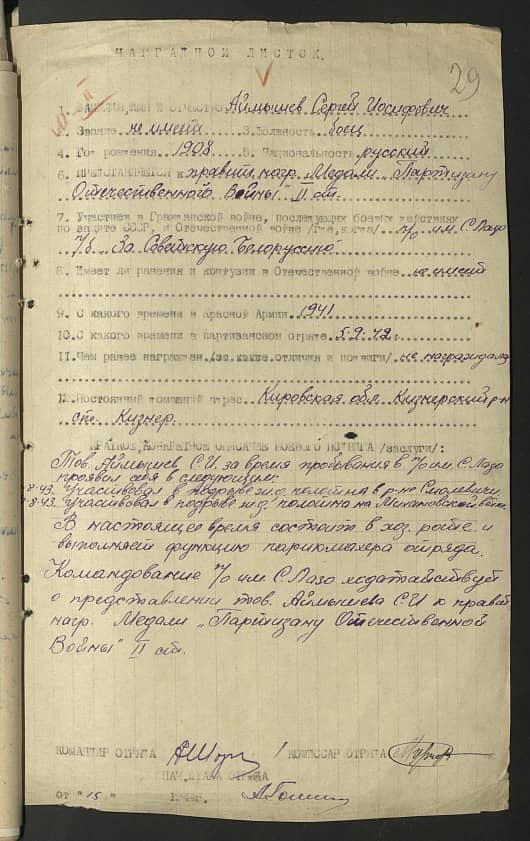 НАГРАДНОЙ ЛИСТОК.
29
1. ФАМИЛИЯ, ИМЯ И ОТЧЕСТВО Аймышев Сергей Иосифович
2. Звание не имеет 3. Должность боец
4. Год рождения 1908 5. Национальность русский
6. ПРЕДСТАВЛЯЕТСЯ к правит. нагр. Медали „Партизану
Отечественной Войны" II ст.
7. Участием в Гражданской войне, последующих боевых действиях
по защите СССР, и Отечественной войне /где, когда/ п/о им. С. Лазо
п/б. „За Советскую Белоруссию"
8. Имеет ли ранения и контузии в Отечественной войне не имеет
9. С какого времени в Красной Армии 1941
10. С какого времени в партизанском отряте 5.9.42 г.
11. Чем ранее награжден /за какие отличия и подвиги/ не награждался
12. Постоянный домашний адрес Кировская обл. Кизнерский р-н
ст. Кизнер.
КРАТКОЕ, КОНКРЕТНОЕ ОПИСАНИЕ БОЕВОГО ПОДВИГА /заслуги/:
Тов. Аймышев С.И. за время пребывания в п/о им. С. Лазо
проявил себя в следующем:
8-43. Участвовал в подрыве ж.д. полотна в р-не Смолевичи.
8-43. Участвовал в подрыве ж.д. полотна на
В настоящее время состоит в хоз. роте и
выполняет функцию парикмахера отряда.
Командование п/о им. С. Лазо ходатайствует
о представлении тов. Аймышева С.И. к правит.
нагр. Медали „Партизану Отечественной
Войны" II ст.
КОМАНДИР ОТРЯТА / КОМИССАР ОТРЯТА
НАЧ. ШТАБА ОТРЯТА
от "15"